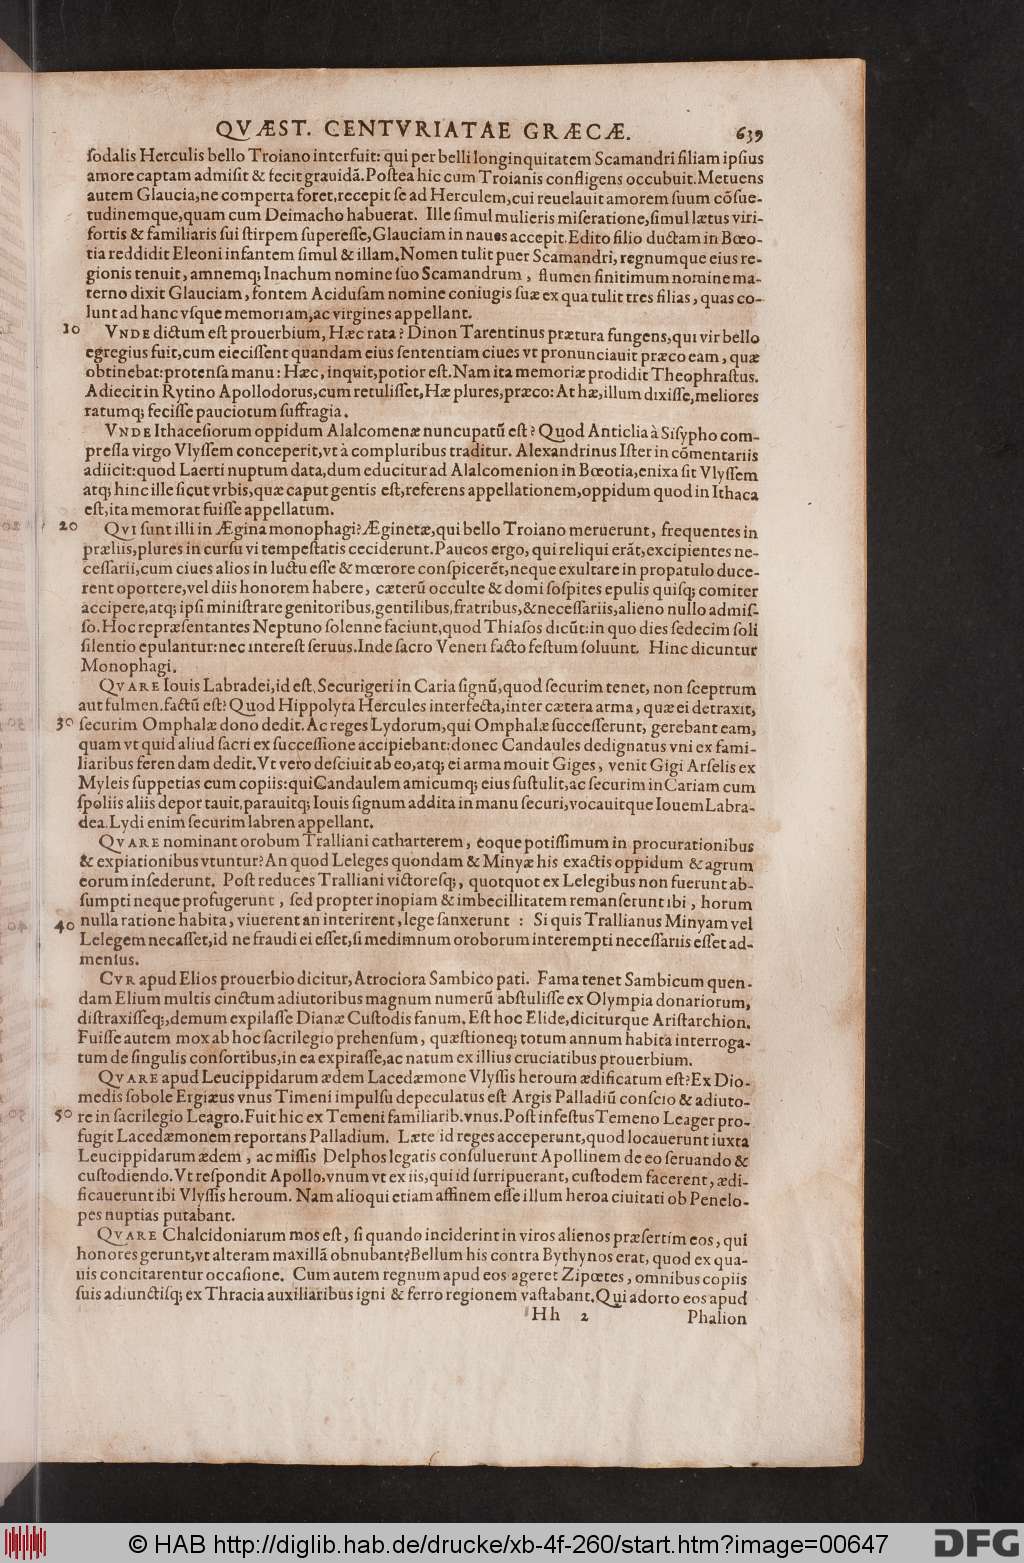 QVÆST. CENTVRIATAE GRÆCÆ. 639
ſodalis Herculis bello Troiano interfuit: qui per belli longinquitatem Scamandri filiam ipſius
amore captam admiſit & fecit grauidã. Poſtea hic cum Troianis confligens occubuit. Metuens
autem Glaucia, ne comperta foret, recepit ſe ad Herculem, cui reuelauit amorem ſuum cõſue-
tudinemque, quam cum Deimacho habuerat. Ille ſimul mulieris miſeratione, ſimul lætus viri-
fortis & familiaris ſui ſtirpem ſupereſſe, Glauciam in naues accepit. Edito filio ductam in Bœo-
tia reddidit Eleoni infantem ſimul & illam. Nomen tulit puer Scamandri, regnumque eius re-
gionis tenuit, amnemq; Inachum nomine ſuo Scamandrum, flumen finitimum nomine ma-
terno dixit Glauciam, fontem Aciduſam nomine coniugis ſuæ ex qua tulit tres filias, quas co-
lunt ad hanc vſque memoriam, ac virgines appellant.
10 VNDE dictum eſt prouerbium, Hæc rata? Dinon Tarentinus prætura fungens, qui vir bello
egregius fuit, cum eieciſſent quandam eius ſententiam ciues vt pronunciauit præco eam, quæ
obtinebat: protenſa manu: Hæc, inquit, potior eſt. Nam ita memoriæ prodidit Theophraſtus.
Adiecit in Rytino Apollodorus, cum retuliſſet, Hæ plures, præco: At hæ, illum dixiſſe, meliores
ratumq; feciſſe pauciotum ſuffragia.
VNDE Ithaceſiorum oppidum Alalcomenæ nuncupatũ eſt? Quod Anticlia à Siſypho com-
preſſa virgo Vlyſſem conceperit, vt à compluribus traditur. Alexandrinus Iſter in cõmentariis
adiicit: quod Laerti nuptum data, dum educitur ad Alalcomenion in Bœotia, enixa ſit Vlyſſem
atq; hinc ille ſicut vrbis, quæ caput gentis eſt, referens appellationem, oppidum quod in Ithaca
eſt, ita memorat fuiſſe appellatum.
20 QVI ſunt illi in Ægina monophagi? Æginetæ, qui bello Troiano meruerunt, frequentes in
præliis, plures in curſu vi tempeſtatis ceciderunt. Paucos ergo, qui reliqui erãt, excipientes ne-
ceſſarii, cum ciues alios in luctu eſſe & mœrore conſpicerẽt, neque exultare in propatulo duce-
rent oportere, vel diis honorem habere, cæterũ occulte & domi ſoſpites epulis quiſq; comiter
accipere, atq; ipſi miniſtrare genitoribus, gentilibus, fratribus, & neceſſariis, alieno nullo admiſ-
ſo. Hoc repræſentantes Neptuno ſolenne faciunt, quod Thiaſos dicũt: in quo dies ſedecim ſoli
ſilentio epulantur: nec intereſt ſeruus. Inde ſacro Veneri facto feſtum ſoluunt. Hinc dicuntur
Monophagi.
QVARE Iouis Labradei, id eſt. Securigeri in Caria ſignũ, quod ſecurim tenet, non ſceptrum
aut fulmen. factũ eſt? Quod Hippolyta Hercules interfecta, inter cætera arma, quæ ei detraxit,
30 ſecurim Omphalæ dono dedit. Ac reges Lydorum, qui Omphalæ ſucceſſerunt, gerebant eam,
quam vt quid aliud ſacri ex ſucceſſione accipiebant: donec Candaules dedignatus vni ex fami-
liaribus ferendam dedit. Vt vero deſciuit ab eo, atq; ei arma mouit Giges, venit Gigi Arſelis ex
Myleis ſuppetias cum copiis: qui Candaulem amicumq; eius ſuſtulit, ac ſecurim in Cariam cum
ſpoliis aliis deportauit, parauitq; Iouis ſignum addita in manu ſecuri, vocauitque Iouem Labra-
dea. Lydi enim ſecurim labren appellant.
QVARE nominant orobum Tralliani catharterem, eoque potiſſimum in procurationibus
& expiationibus vtuntur? An quod Leleges quondam & Minyæ his exactis oppidum & agrum
eorum inſederunt. Poſt reduces Tralliani victoreſq;, quotquot ex Lelegibus non fuerunt ab-
ſumpti neque profugerunt, ſed propter inopiam & imbecillitatem remanſerunt ibi, horum
40 nulla ratione habita, viuerent an interirent, lege ſanxerunt : Si quis Trallianus Minyam vel
Lelegem necaſſet, id ne fraudi ei eſſet, ſi medimnum oroborum interempti neceſſariis eſſet ad-
menſus.
CVR apud Elios prouerbio dicitur, Atrociora Sambico pati. Fama tenet Sambicum quen-
dam Elium multis cinctum adiutoribus magnum numerũ abſtuliſſe ex Olympia donariorum,
diſtraxiſſeq;, demum expilaſſe Dianæ Cuſtodis fanum. Eſt hoc Elide, diciturque Ariſtarchion.
Fuiſſe autem mox ab hoc ſacrilegio prehenſum, quæſtioneq; totum annum habita interroga-
tum de ſingulis conſortibus, in ea expiraſſe, ac natum ex illius cruciatibus prouerbium.
QVARE apud Leucippidarum ædem Lacedæmone Vlyſſis heroum ædificatum eſt? Ex Dio-
medis ſobole Ergiæus vnus Timeni impulſu depeculatus eſt Argis Palladiũ conſcio & adiuto-
50 re in ſacrilegio Leagro. Fuit hic ex Temeni familiarib. vnus. Poſt infeſtus Temeno Leager pro-
fugit Lacedæmonem reportans Palladium. Læte id reges acceperunt, quod locauerunt iuxta
Leucippidarum ædem, ac miſſis Delphos legatis conſuluerunt Apollinem de eo ſeruando &
cuſtodiendo. Vt reſpondit Apollo, vnum vt ex iis, qui id ſurripuerant, cuſtodem facerent, ædi-
ficauerunt ibi Vlyſſis heroum. Nam alioqui etiam affinem eſſe illum heroa ciuitati ob Penelo-
pes nuptias putabant.
QVARE Chalcidoniarum mos eſt, ſi quando inciderint in viros alienos præſertim eos, qui
honores gerunt, vt alteram maxillã obnubant? Bellum his contra Bythynos erat, quod ex qua-
uis concitarentur occaſione. Cum autem regnum apud eos ageret Zipœtes, omnibus copiis
ſuis adiunctiſq; ex Thracia auxiliaribus igni & ferro regionem vaſtabant. Qui adorto eos apud
Hh 2 Phalion
© HAB http://diglib.hab.de/drucke/xb-4f-260/start.htm?image=00647 DFG